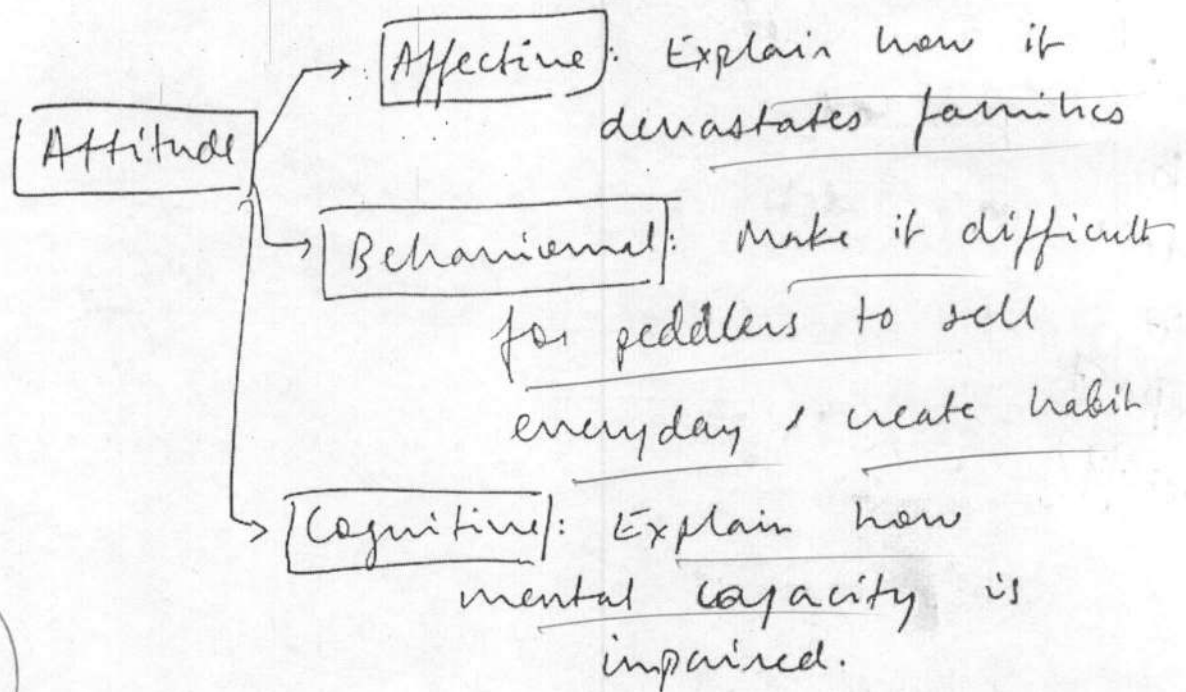 Affective: Explain how it
devastates families
Attitude
Behavioural: Make it difficult
for peddlers to sell
everyday & create habit
Cognitive: Explain how
mental capacity is
impaired.